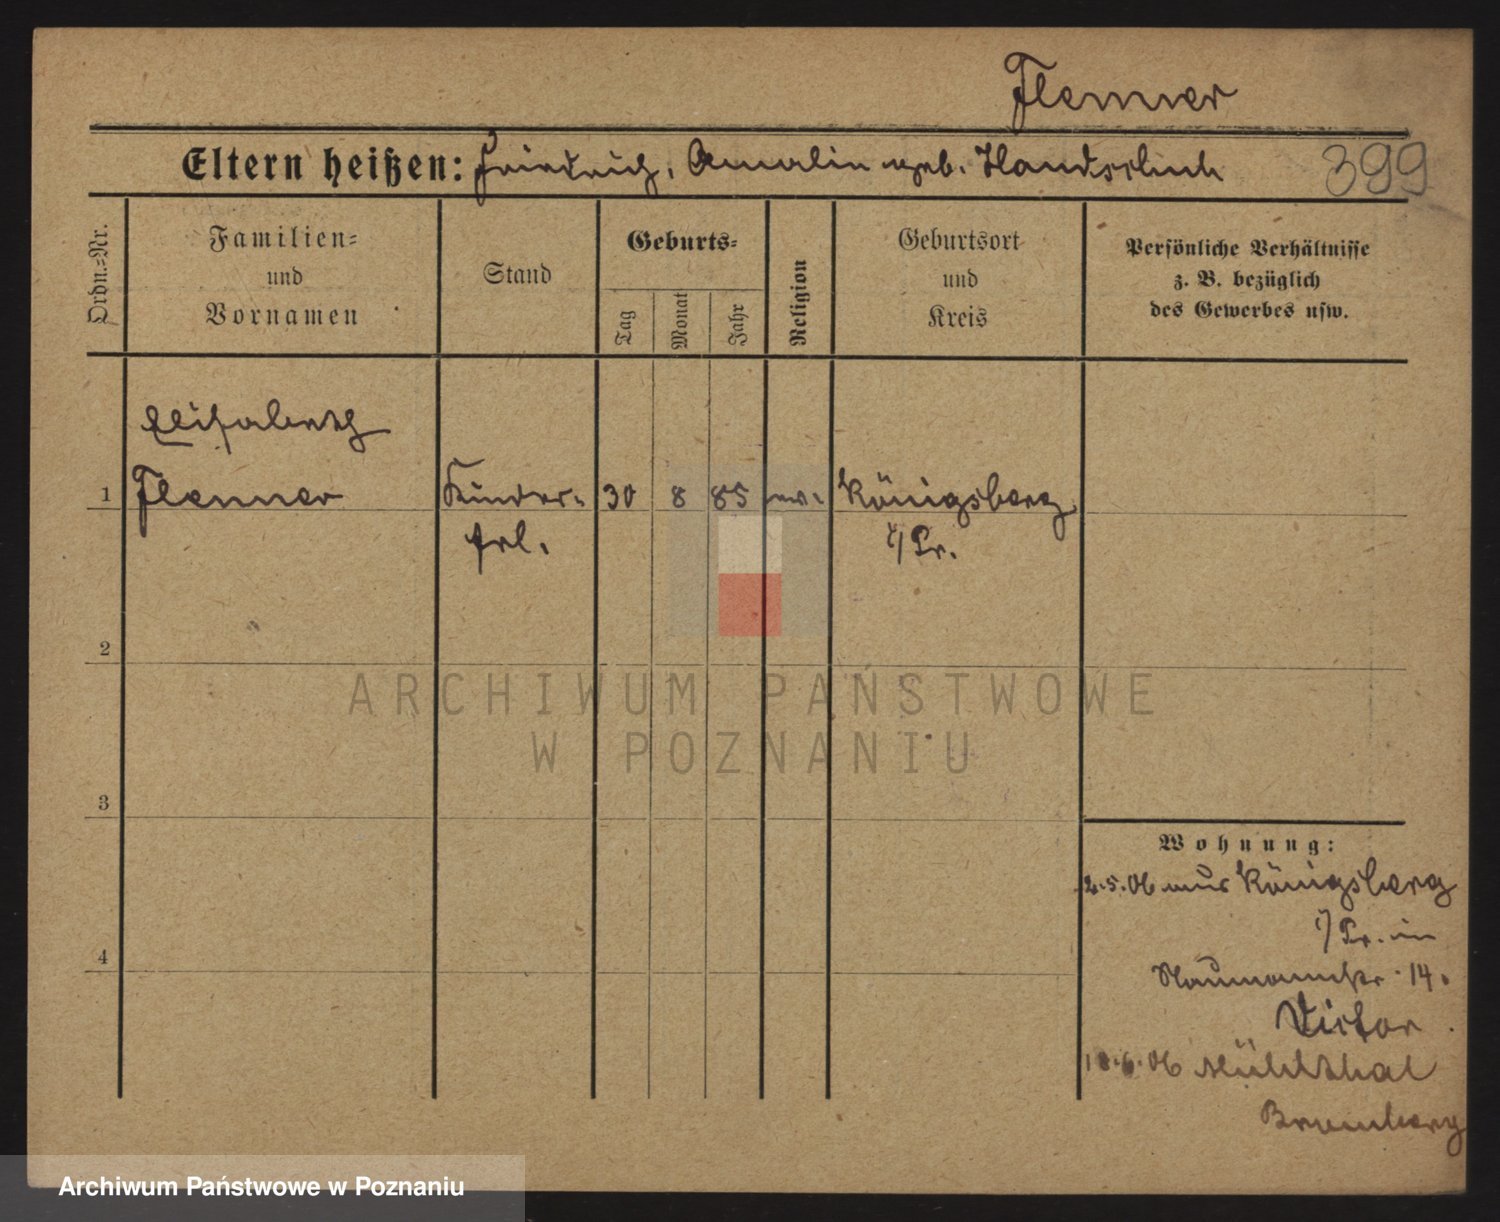 Flenner
Eltern heißen: Friedrich, Amalie geb. 399
Ordn.=Nr.
Familien=
und
Vornamen
Stand
Geburts=
Tag
Monat
Jahr
Religion
Geburtsort
und
Kreis
Persönliche Verhältnisse
z. B. bezüglich
des Gewerbes usw.
Elisabeth
1 Flenner Kinder- 30 8 85 ev. Königsberg
frl. i/Pr.
2
3
4
Wohnung:
2.5.06 aus Königsberg
i/Pr. in
Naumannstr. 14.
Victor
18.6.06 Mühlthal
Bromberg
ARCHIWUM PAŃSTWOWE
W POZNANIU
Archiwum Państwowe w Poznaniu